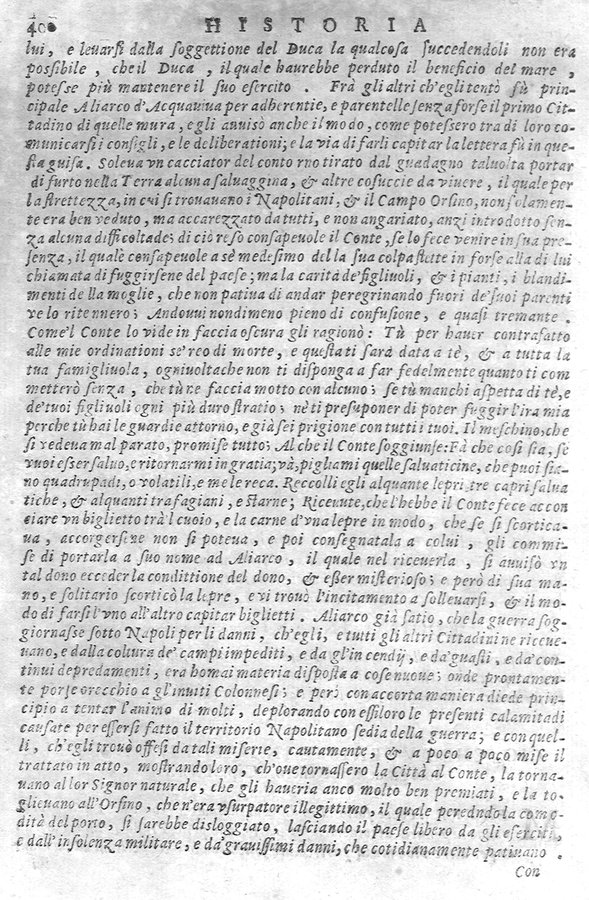 400 HISTORIA
lui, e leuarsi dalla soggettione del Duca la qualcosa succedendoli non era
possibile, che il Duca, il quale haurebbe perduto il beneficio del mare,
potesse più mantenere il suo esercito. Frà gli altri ch'egli tentò fù prin-
cipale Aliarco d'Acquauiua per adherentie, e parentelle senza forse il primo Cit-
tadino di quelle mura, e gli auuisò anche il modo, come potessero tra di loro co-
municarsi i consigli, e le deliberationi; e la via di farli capitar la lettera fù in que-
sta guisa. Soleua vn cacciator del contorno tirato dal guadagno taluolta portar
di furto nella Terra alcuna saluaggina, & altre cosuccie da viuere, il quale per
la strettezza, in cui si trouauano i Napolitani, & il Campo Orsino, non solamen-
te era ben veduto, ma accarezzato da tutti, e non angariato, anzi introdotto sen-
za alcuna difficoltade; di ciò resò consapeuole il Conte, se lo fece venire in sua pre-
senza, il quale consapeuole a sè medesimo della sua colpa stette in forse alla di lui
chiamata di fuggirsene del paese; ma la carità de'figliuoli, & i pianti, i blandi-
menti della moglie, che non patiua di andar peregrinando fuori de'suoi parenti
ve lo ritennero; Andouui nondimeno pieno di confusione, e quasi tremante.
Come'l Conte lo vide in faccia oscura gli ragionò: Tù per hauer contrafatto
alle mie ordinationi se'reo di morte, e questa ti sarà data a tè, & a tutta la
tua famigliuola, ogniuoltache non ti disponga a far fedelmente quanto ti com
metterò senza, che tù ne faccia motto con alcuno; se tù manchi aspetta di tè, e
de'tuoi figliuoli ogni più duro stratio; nè ti presuponer di poter fuggir l'ira mia
perche tù hai le guardie attorno, e già sei prigione con tutti i tuoi. Il meschino, che
si vedeua mal parato, promise tutto; Al che il Conte soggiunse: Fà che così sia, se
vuoi esser saluo, e ritornarmi in gratia; và, pigliami quelle saluaticine, che puoi sia-
no quadrupadi, o volatili, e me le reca. Recolli egli alquante lepri, tre capri salua
tiche, & alquanti trafagiani, e starne; Riceuute, che l'hebbe il Conte fece accon
ciare vn biglietto trà'l cuoio, e la carne d'vna lepre in modo, che se si scortica-
ua, accorgersene non si poteua, e poi consegnatala a colui, gli commi-
se di portarla a suo nome ad Aliarco, il quale nel riceuerla, si auuisò vn
tal dono ecceder la condittione del dono, & esser misterioso; e però di sua ma-
no, e solitario scorticò la lepre, e vi trouò l'incitamento a solleuarsi, & il mo-
do di farsi l'vno all'altro capitar biglietti. Aliarco già satio, che la guerra sog-
giornasse sotto Napoli per li danni, ch'egli, e tutti gli altri Cittadini ne riceue-
uano, e dalla coltura de' campi impediti, e da gl'incendij, e da'guasti, e da'con-
tinui depredamenti, era homai materia disposta a cose nuoue; onde prontamen-
te porse orecchio a gl'inuiti Colonnesi; e però con accorta maniera diede prin-
cipio a tentar l'animo di molti, deplorando con essiloro le presenti calamitadi
causate per essersi fatto il territorio Napolitano sedia della guerra; e con quel-
li, ch'egli trouò offesi da tali miserie, cautamente, & a poco a poco mise il
trattato in atto, mostrando loro, ch'oue tornassero la Città al Conte, la torna-
uano al lor Signor naturale, che gli haueria anco molto ben premiati, e la to-
glieuano all'Orsino, che n'era vsurpatore illegittimo, il quale perdendo la como-
dità del porto, si sarebbe disloggiato, lasciando il paese libero da gli eserciti,
e dall'insolenza militare, e da'grauissimi danni, che cotidianamente patiuano.
Con